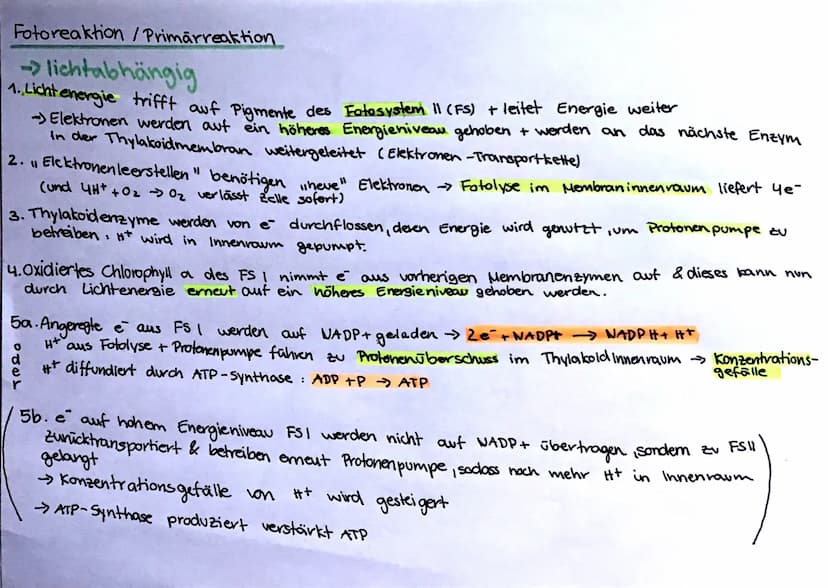 Fotoreaktion / Primärreaktion
→ lichtabhängig
1. Lichtenergie trifft auf Pigmente des Fotosystem II (FS) + leitet Energie weiter
→ Elektronen werden auf ein höheres Energieniveau gehoben + werden an das nächste Enzym
in der Thylakoidmembran weitergeleitet (Elektronen-Transportkette)
2. "Elektronenleerstellen" benötigen "neue" Elektronen → Fotolyse im Membraninnenraum liefert 4e⁻
(und 4H⁺ + O₂ → O₂ verlässt Zelle sofort)
3. Thylakoidenzyme werden von e⁻ durchflossen, deren Energie wird genutzt, um Protonenpumpe zu
betreiben, H⁺ wird in Innenraum gepumpt.
4. Oxidiertes Chlorophyll a des FS I nimmt e⁻ aus vorherigen Membranenzymen auf & dieses kann nun
durch Lichtenergie erneut auf ein höheres Energieniveau gehoben werden.
5a. Angeregte e⁻ aus FS I werden auf NADP+ geladen → 2e⁻ + NADP+ → NADPH + H+
H⁺ aus Fotolyse + Protonenpumpe führen zu Protonenüberschuss im Thylakoidinnenraum → Konzentrations-
gefälle
H⁺ diffundiert durch ATP-Synthase : ADP + P → ATP
oder
(5b. e⁻ auf hohem Energieniveau FS I werden nicht auf NADP+ übertragen, sondern zu FS II
zurücktransportiert & betreiben erneut Protonenpumpe, sodass noch mehr H⁺ in Innenraum
gelangt
→ Konzentrationsgefälle von H⁺ wird gesteigert
→ ATP-Synthase produziert verstärkt ATP)